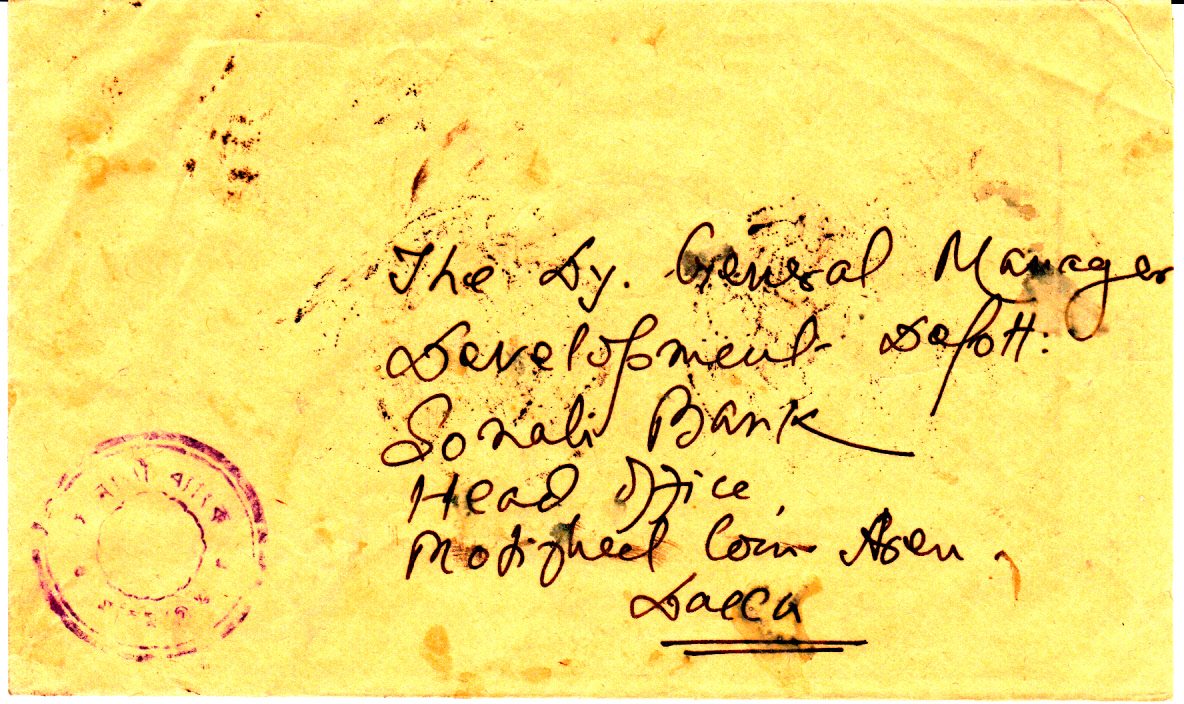 The Dy. General Manager
Development Deptt:
Sonali Bank
Head Office
Motijheel Com Area.
Dacca